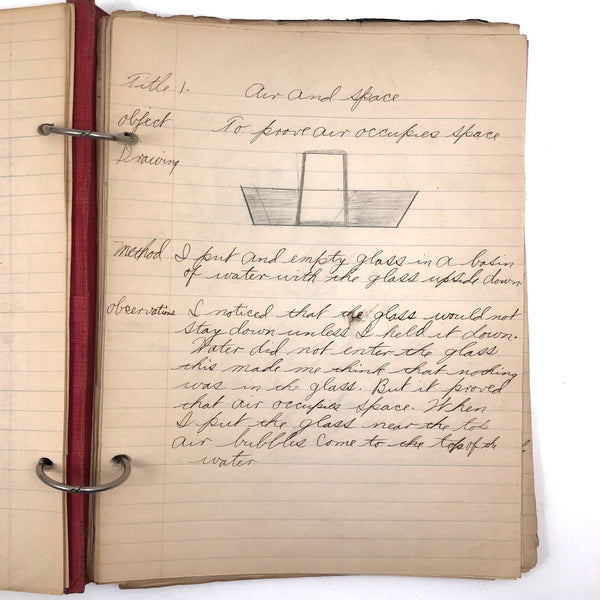 Title 1. Air and Space
Object To prove air occupies space
Drawing
Method I put and empty glass in a basin
of water with the glass upside down.
Observations I noticed that the glass would not
stay down unless I held it down.
Water did not enter the glass
this made me think that nothing
was in the glass. But it proved
that air occupies space. When
I put the glass near the top
air bubbles come to the top of the
water